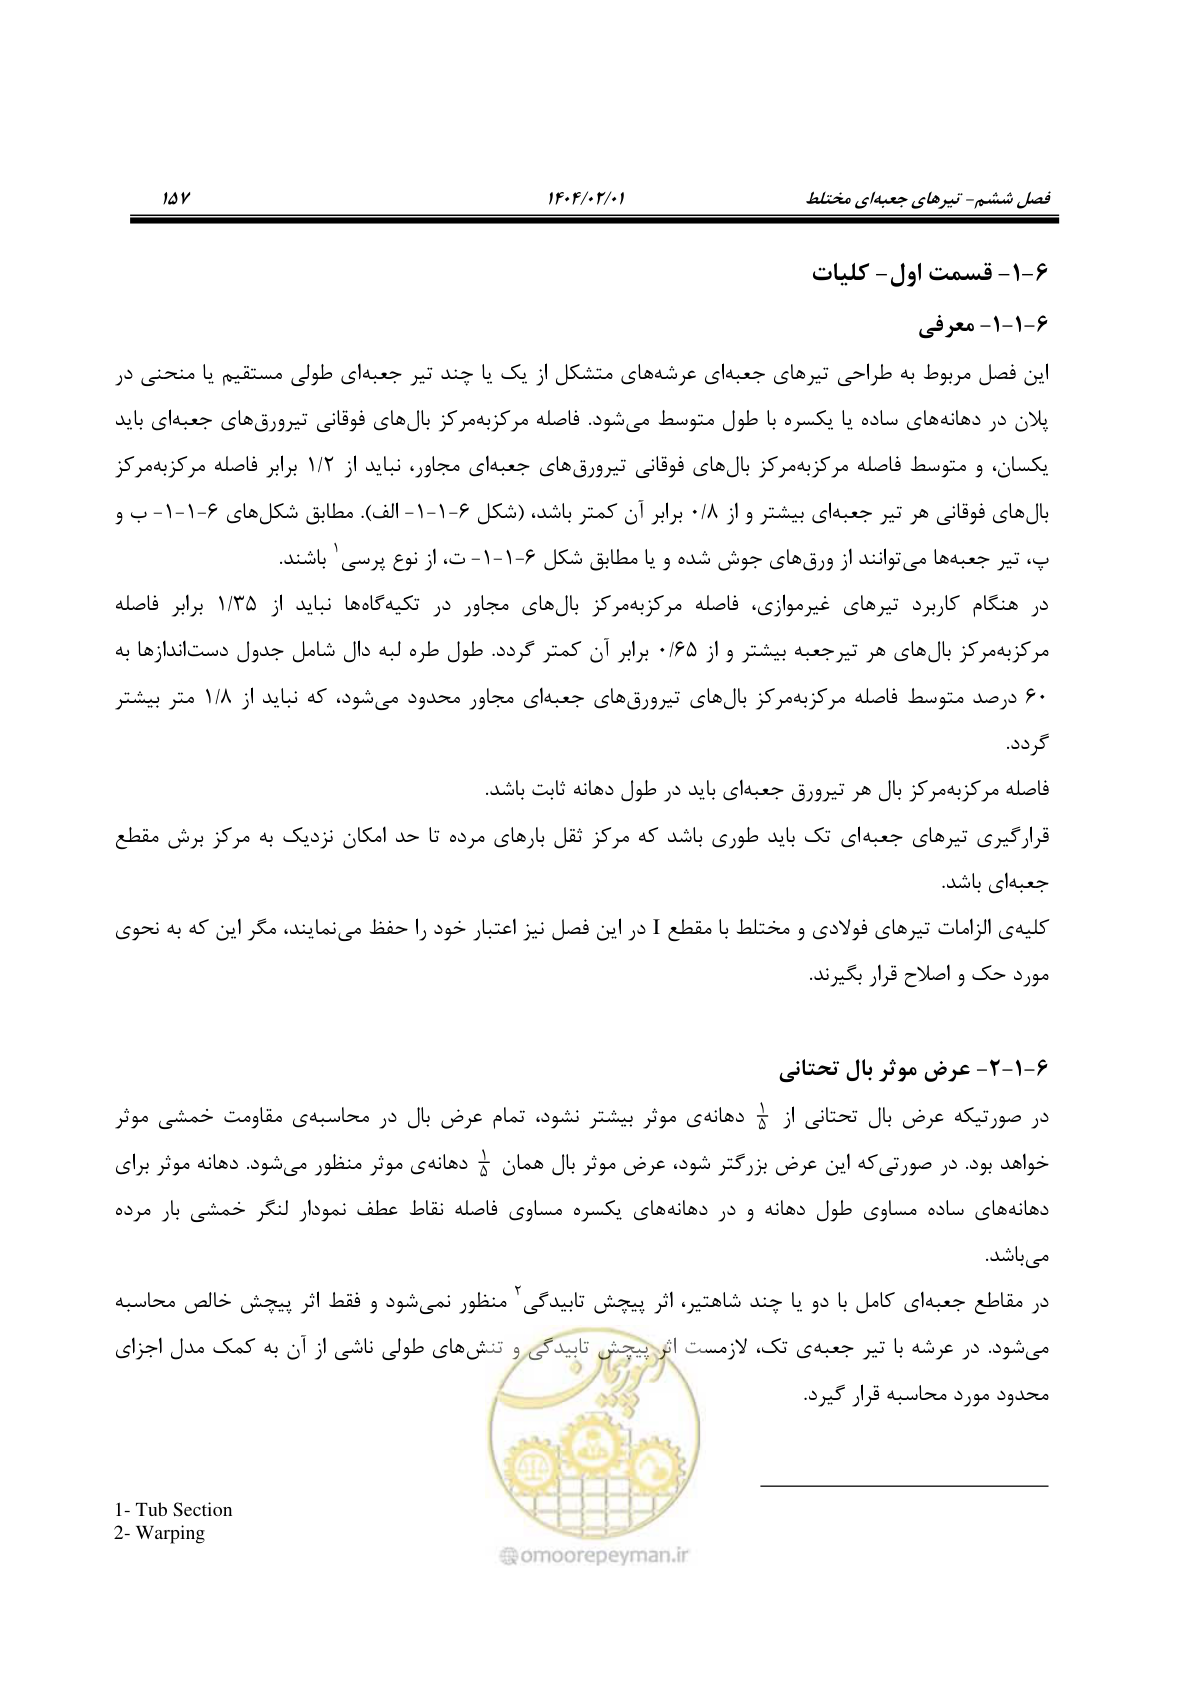 فصل ششم- تیرهای جعبه‌ای مختلط ۱۴۰۴/۰۲/۰۱ ۱۵۷
۶-۱- قسمت اول- کلیات
۶-۱-۱- معرفی
این فصل مربوط به طراحی تیرهای جعبه‌ای عرشه‌های متشکل از یک یا چند تیر جعبه‌ای طولی مستقیم یا منحنی در
پلان در دهانه‌های ساده یا یکسره با طول متوسط می‌شود. فاصله مرکزبه‌مرکز بال‌های فوقانی تیرورق‌های جعبه‌ای باید
یکسان، و متوسط فاصله مرکزبه‌مرکز بال‌های فوقانی تیرورق‌های جعبه‌ای مجاور، نباید از ۱/۲ برابر فاصله مرکزبه‌مرکز
بال‌های فوقانی هر تیر جعبه‌ای بیشتر و از ۰/۸ برابر آن کمتر باشد، (شکل ۶-۱-۱- الف). مطابق شکل‌های ۶-۱-۱- ب و
پ، تیر جعبه‌ها می‌توانند از ورق‌های جوش شده و یا مطابق شکل ۶-۱-۱- ت، از نوع پرسی۱ باشند.
در هنگام کاربرد تیرهای غیرموازی، فاصله مرکزبه‌مرکز بال‌های مجاور در تکیه‌گاه‌ها نباید از ۱/۳۵ برابر فاصله
مرکزبه‌مرکز بال‌های هر تیرجعبه بیشتر و از ۰/۶۵ برابر آن کمتر گردد. طول طره لبه دال شامل جدول دست‌اندازها به
۶۰ درصد متوسط فاصله مرکزبه‌مرکز بال‌های تیرورق‌های جعبه‌ای مجاور محدود می‌شود، که نباید از ۱/۸ متر بیشتر
گردد.
فاصله مرکزبه‌مرکز بال هر تیرورق جعبه‌ای باید در طول دهانه ثابت باشد.
قرارگیری تیرهای جعبه‌ای تک باید طوری باشد که مرکز ثقل بارهای مرده تا حد امکان نزدیک به مرکز برش مقطع
جعبه‌ای باشد.
کلیه‌ی الزامات تیرهای فولادی و مختلط با مقطع I در این فصل نیز اعتبار خود را حفظ می‌نمایند، مگر این که به نحوی
مورد حک و اصلاح قرار بگیرند.
۶-۱-۲- عرض موثر بال تحتانی
در صورتیکه عرض بال تحتانی از ۱/۵ دهانه‌ی موثر بیشتر نشود، تمام عرض بال در محاسبه‌ی مقاومت خمشی موثر
خواهد بود. در صورتی‌که این عرض بزرگتر شود، عرض موثر بال همان ۱/۵ دهانه‌ی موثر منظور می‌شود. دهانه موثر برای
دهانه‌های ساده مساوی طول دهانه و در دهانه‌های یکسره مساوی فاصله نقاط عطف نمودار لنگر خمشی بار مرده
می‌باشد.
در مقاطع جعبه‌ای کامل با دو یا چند شاهتیر، اثر پیچش تابیدگی۲ منظور نمی‌شود و فقط اثر پیچش خالص محاسبه
می‌شود. در عرشه با تیر جعبه‌ی تک، لازمست اثر پیچش تابیدگی و تنش‌های طولی ناشی از آن به کمک مدل اجزای
محدود مورد محاسبه قرار گیرد.
1- Tub Section
2- Warping
امور پیمان
@omoorepeyman.ir